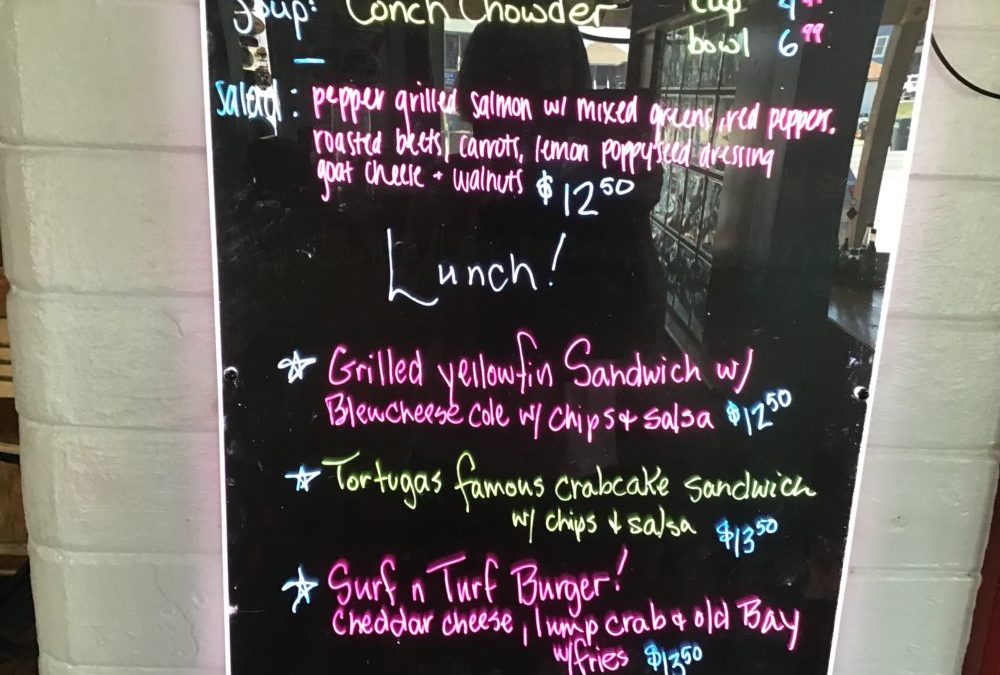 Soup: Conch Chowder cup 4 99
bowl 6 99
Salad: pepper grilled salmon w/ mixed greens, red peppers,
roasted beets, carrots, lemon poppyseed dressing
goat cheese + walnuts $12 50
Lunch!
Grilled yellowfin Sandwich w/
Blewcheese Cole w/ chips + salsa $12 50
Tortugas famous crabcake sandwich
w/ chips + salsa $13 50
Surf n Turf Burger!
Cheddar cheese, lump crab + old Bay
w/fries $13 50